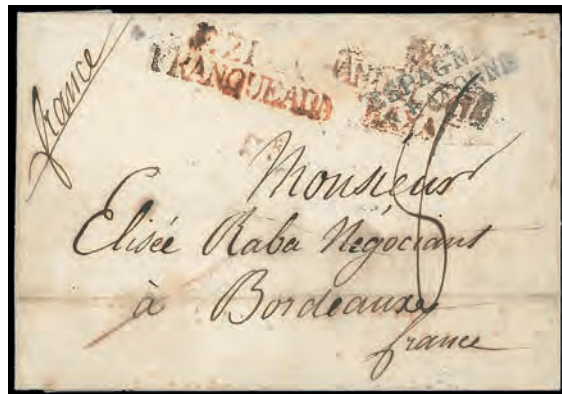 france
FRANQUEADO
ESPAGNE
Monsieur
Elisée Raba Négociant
à Bordeaux
france